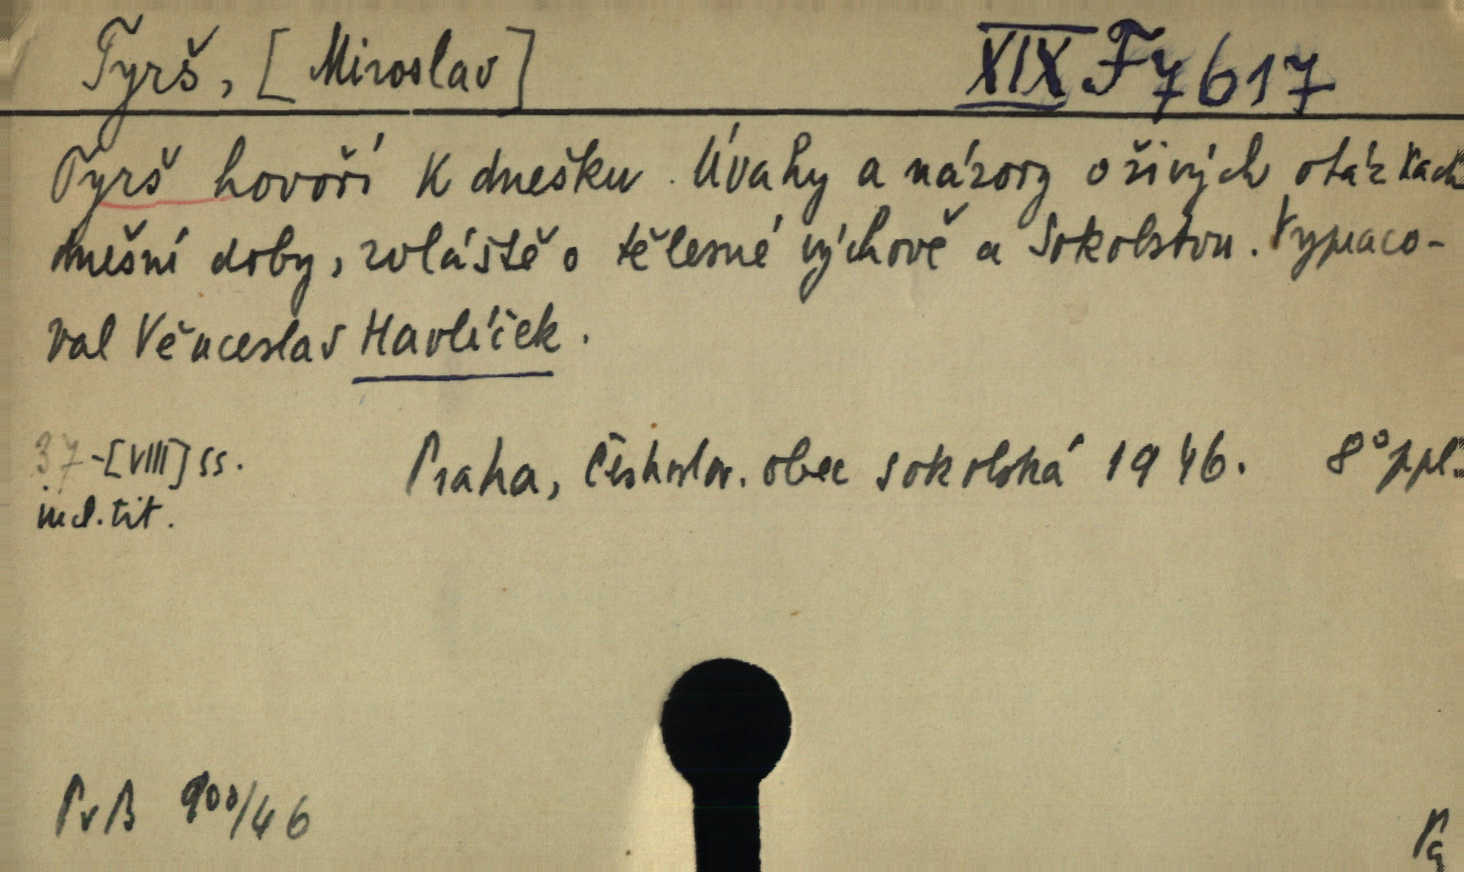 Tyrš, [Miroslav] XIX F 7617
Tyrš hovoří k dnešku. Úvahy a názory o živých otázkách
dnešní doby, zvláště o tělesné výchově a Sokolstvu. Vypraco-
val Věnceslav Havlíček.
37-[VIII] ss. Praha, Českoslov. obec sokolská 1946. 8° ppl.
incl. tit.
PvB 900/46